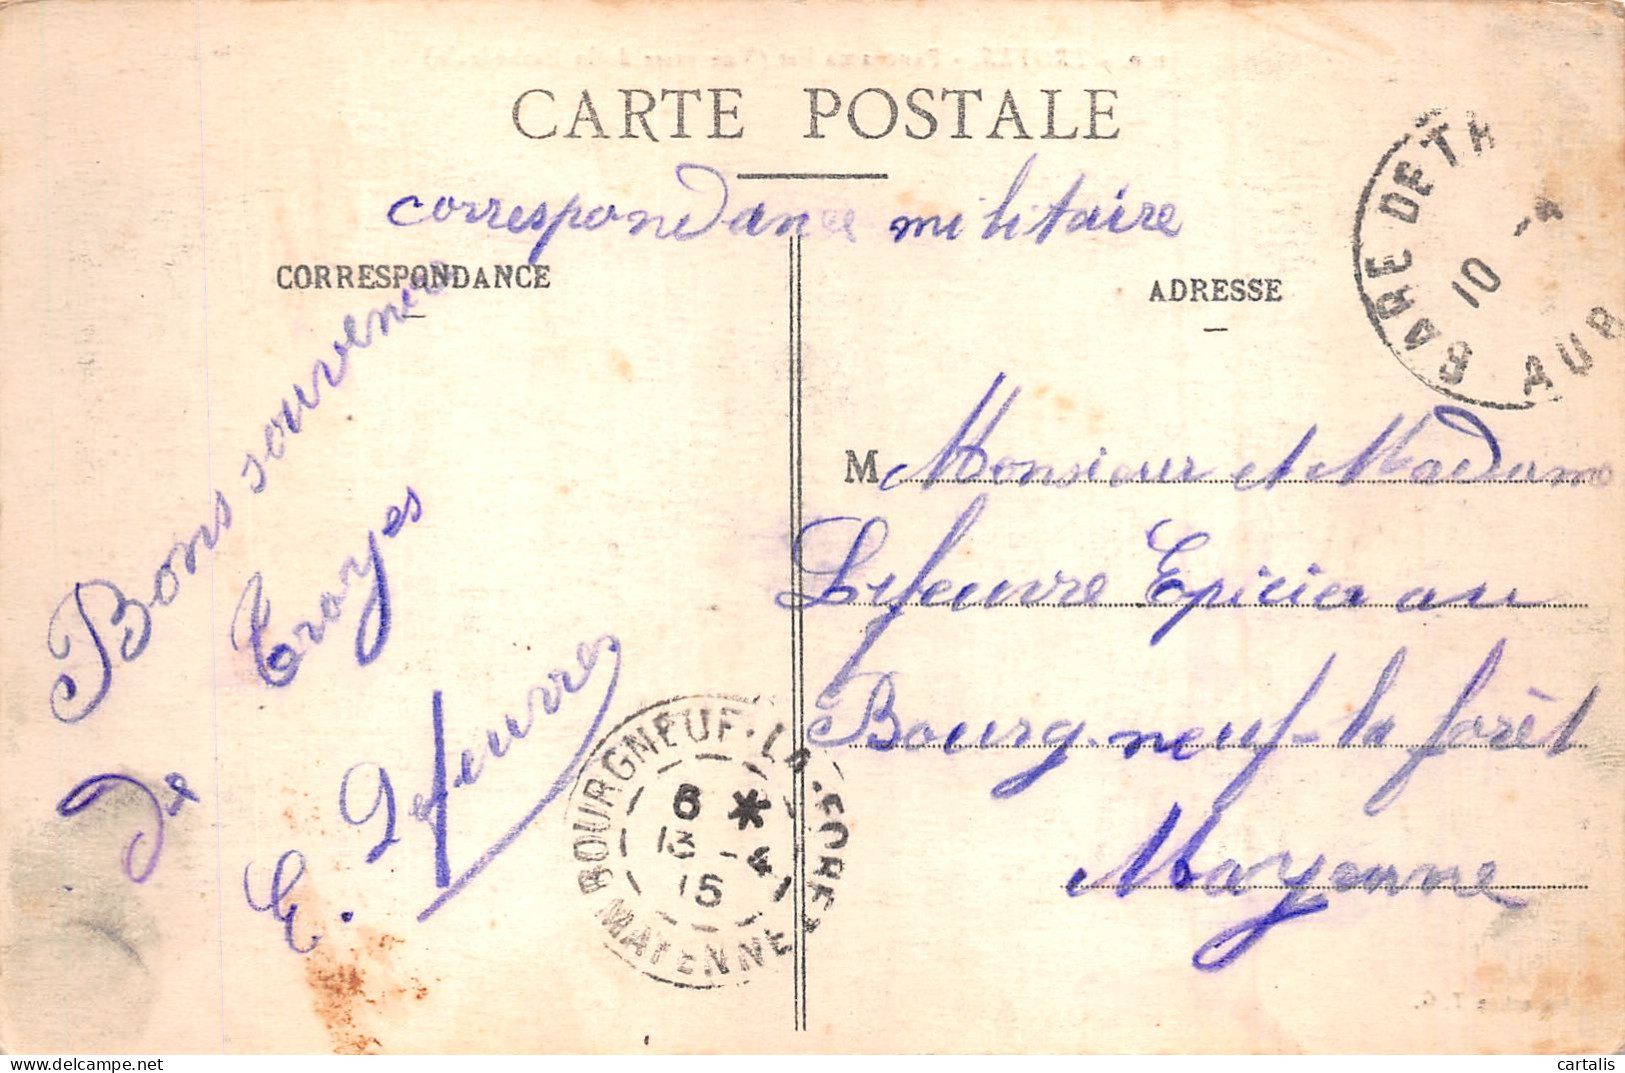 CARTE POSTALE
correspondance militaire
CORRESPONDANCE
ADRESSE
Bons souvenirs
de Troyes
E. Lefeuvre
M Monsieur et Madame
Lefeuvre Epicier au
Bourg-neuf-la forêt
Mayenne
GARE DE TR
10 - 4
AUB
BOURGNEUF-LA-FORET
6 *
13 - 4
15
MAYENNE
cartalis